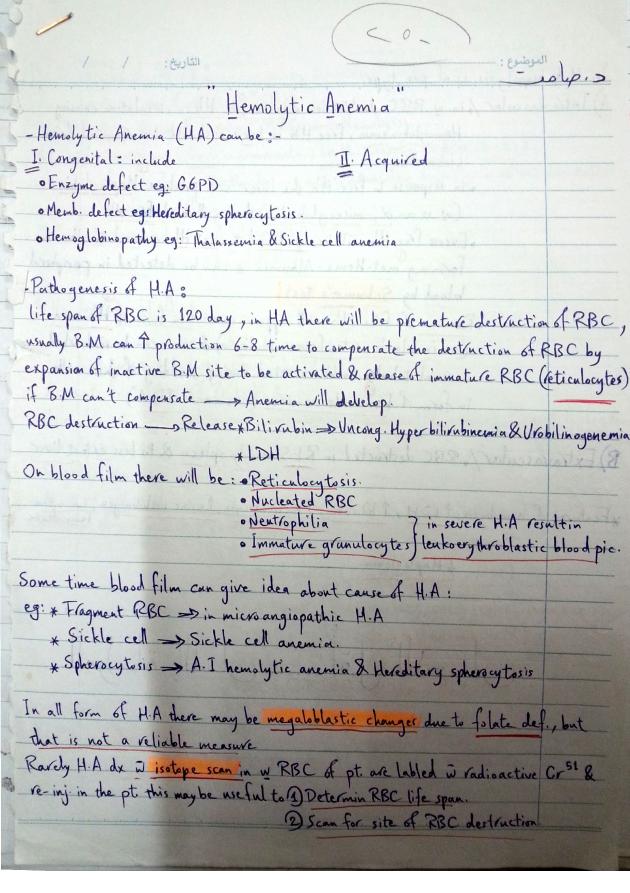 < 0 -
التاريخ: / /
الموضوع:
د. صامت
"Hemolytic Anemia"
- Hemolytic Anemia (HA) can be :-
I. Congenital: include
II. Acquired
• Enzyme defect eg: G6PD
• Memb. defect eg: Hereditary spherocytosis.
• Hemoglobinopathy eg: Thalassemia & Sickle cell anemia
- Pathogenesis of H.A :
life span of RBC is 120 day, in HA there will be premature destruction of RBC,
usually B.M can ↑ production 6-8 time to compensate the destruction of RBC by
expansion of inactive B.M site to be activated & release of immature RBC (reticulocytes)
if B.M can't compensate → Anemia will develop.
RBC destruction → Release * Bilirubin ⇒ Uncong. Hyperbilirubinemia & Urobilinogenemia
* LDH
On blood film there will be : • Reticulocytosis.
• Nucleated RBC
• Neutrophilia
• Immature granulocytes } in severe H.A result in
leukoerythroblastic blood pic.
Some time blood film can give idea about cause of H.A :
eg: * Fragment RBC ⇒ in microangiopathic H.A
* Sickle cell → Sickle cell anemia.
* Spherocytosis → A.I hemolytic anemia & Hereditary spherocytosis
In all form of H.A there may be megaloblastic changes due to folate def., but
that is not a reliable measure
Rarely H.A dx w̄ isotope scan in w RBC of pt. are labled w̄ radioactive Cr⁵¹ &
re-inj. in the pt this may be useful to ① Determin RBC life span.
② Scan for site of RBC destruction